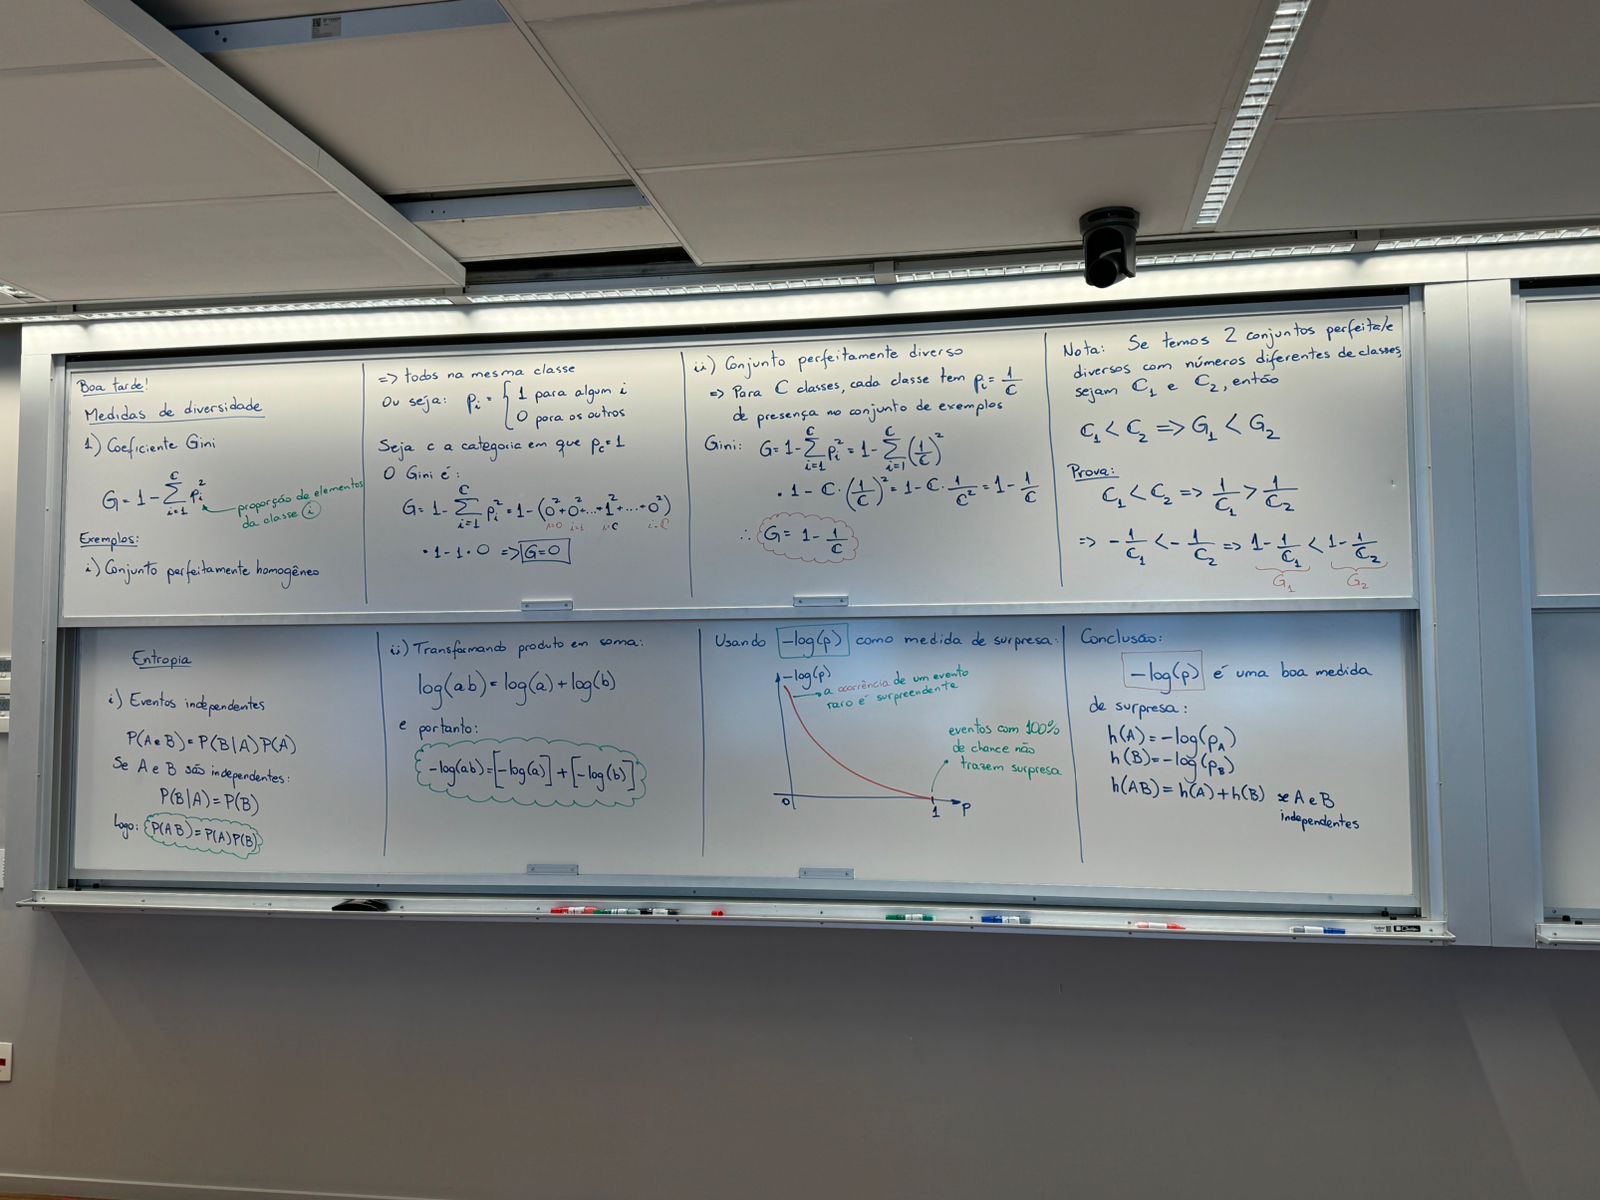 Boa tarde!
Medidas de diversidade
1) Coeficiente Gini
G = 1 - ∑_{i=1}^{C} p_i^2
proporção de elementos
da classe i
Exemplos:
i) Conjunto perfeitamente homogêneo
=> todos na mesma classe
Ou seja: p_i = { 1 para algum i
0 para os outros
Seja c a categoria em que p_c = 1
O Gini é:
G = 1 - ∑_{i=1}^{C} p_i^2 = 1 - (0^2 + 0^2 + ... + 1^2 + ... + 0^2)
i=0 i=1 i=c i=C
= 1 - 1 = 0 => G = 0
ii) Conjunto perfeitamente diverso
=> Para C classes, cada classe tem p_i = 1/C
de presença no conjunto de exemplos
Gini: G = 1 - ∑_{i=1}^{C} p_i^2 = 1 - ∑_{i=1}^{C} (1/C)^2
= 1 - C · (1/C)^2 = 1 - C · 1/C^2 = 1 - 1/C
∴ G = 1 - 1/C
Nota: Se temos 2 conjuntos perfeita/e
diversos com números diferentes de classes,
sejam C_1 e C_2, então
C_1 < C_2 => G_1 < G_2
Prova:
C_1 < C_2 => 1/C_1 > 1/C_2
=> -1/C_1 < -1/C_2 => 1 - 1/C_1 < 1 - 1/C_2
G_1 G_2
Entropia
i) Eventos independentes
P(A e B) = P(B|A) P(A)
Se A e B são independentes:
P(B|A) = P(B)
Logo: P(AB) = P(A)P(B)
ii) Transformando produto em soma:
log(ab) = log(a) + log(b)
e portanto:
-log(ab) = [-log(a)] + [-log(b)]
Usando -log(p) como medida de surpresa:
-log(p)
a ocorrência de um evento
raro é surpreendente
eventos com 100%
de chance não
trazem surpresa
0 1 p
Conclusão:
-log(p) é uma boa medida
de surpresa:
h(A) = -log(p_A)
h(B) = -log(p_B)
h(AB) = h(A) + h(B) se A e B
independentes